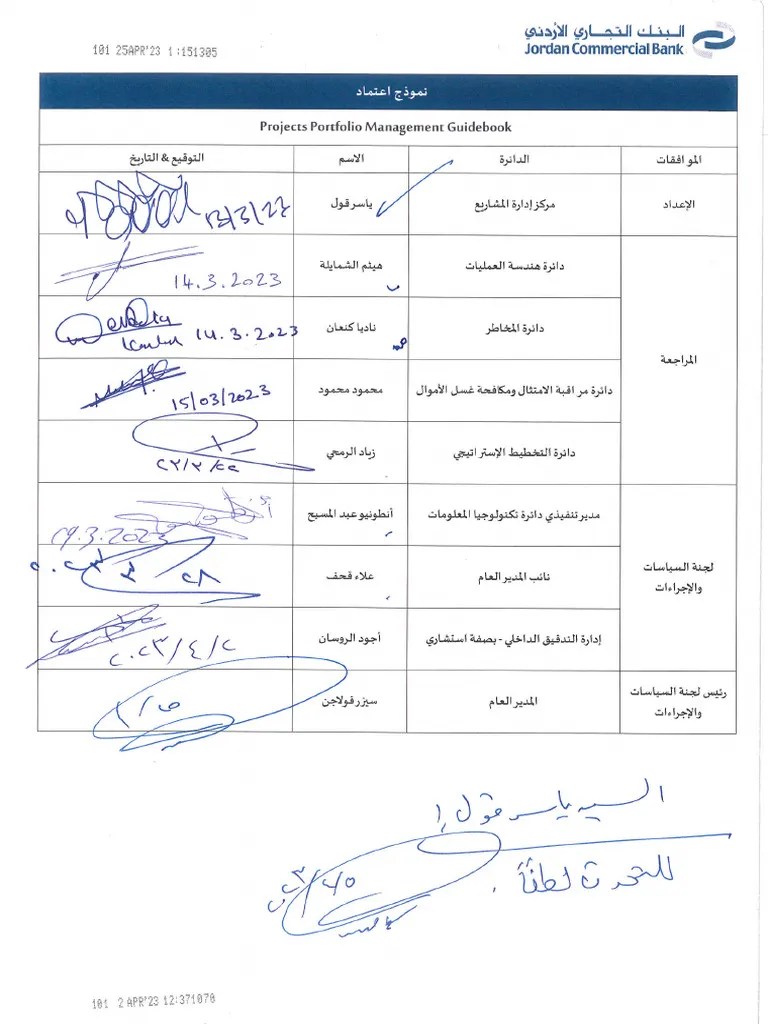 101 25APR'23 1:151305
البنك التجاري الأردني
Jordan Commercial Bank
نموذج اعتماد
Projects Portfolio Management Guidebook
الموافقات الدائرة الاسم التوقيع & التاريخ
الإعداد مركز إدارة المشاريع ياسر قول 13/3/23
المراجعة
دائرة هندسة العمليات هيثم الشمايلة 14.3.2023
دائرة المخاطر ناديا كنعان 14.3.2023
دائرة مراقبة الامتثال ومكافحة غسل الأموال محمود محمود 15/03/2023
دائرة التخطيط الإستراتيجي زياد الرمحي
لجنة السياسات والإجراءات
مدير تنفيذي دائرة تكنولوجيا المعلومات أنطونيو عبد المسيح 19.3.2023
نائب المدير العام علاء قحف
إدارة التدقيق الداخلي - بصفة استشاري أجود الروسان ٢٠٢٣/٤/٢
رئيس لجنة السياسات والإجراءات
المدير العام سيزر قولاجن
السيد ياسر قول
للتحدث لطفاً
101 2 APR'23 12:371070